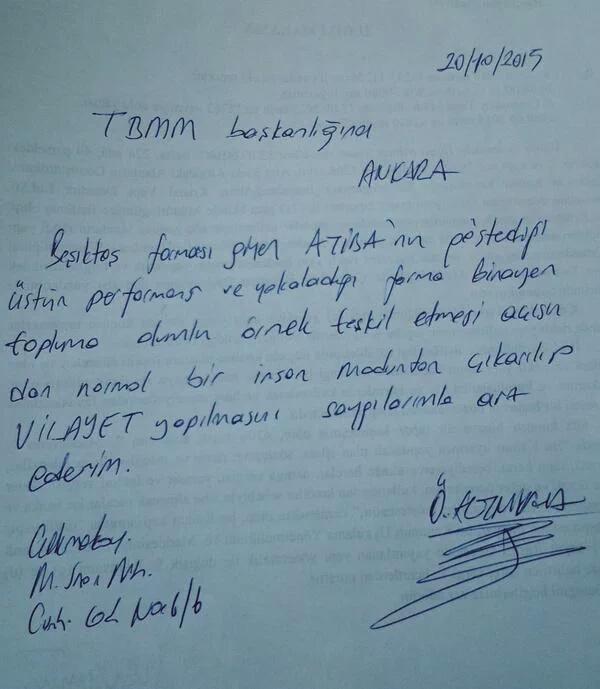 20/10/2015
TBMM başkanlığına
ANKARA
Beşiktaş forması giyen ATIBA'nın gösterdiği
üstün performans ve yakaladığı forma binayen
topluma olumlu örnek teşkil etmesi açısın
dan normal bir insan modundan çıkarılıp
VİLAYET yapılmasını saygılarımla arz
ederim.
Ö.
M. Mh.
Cad. No:6/6